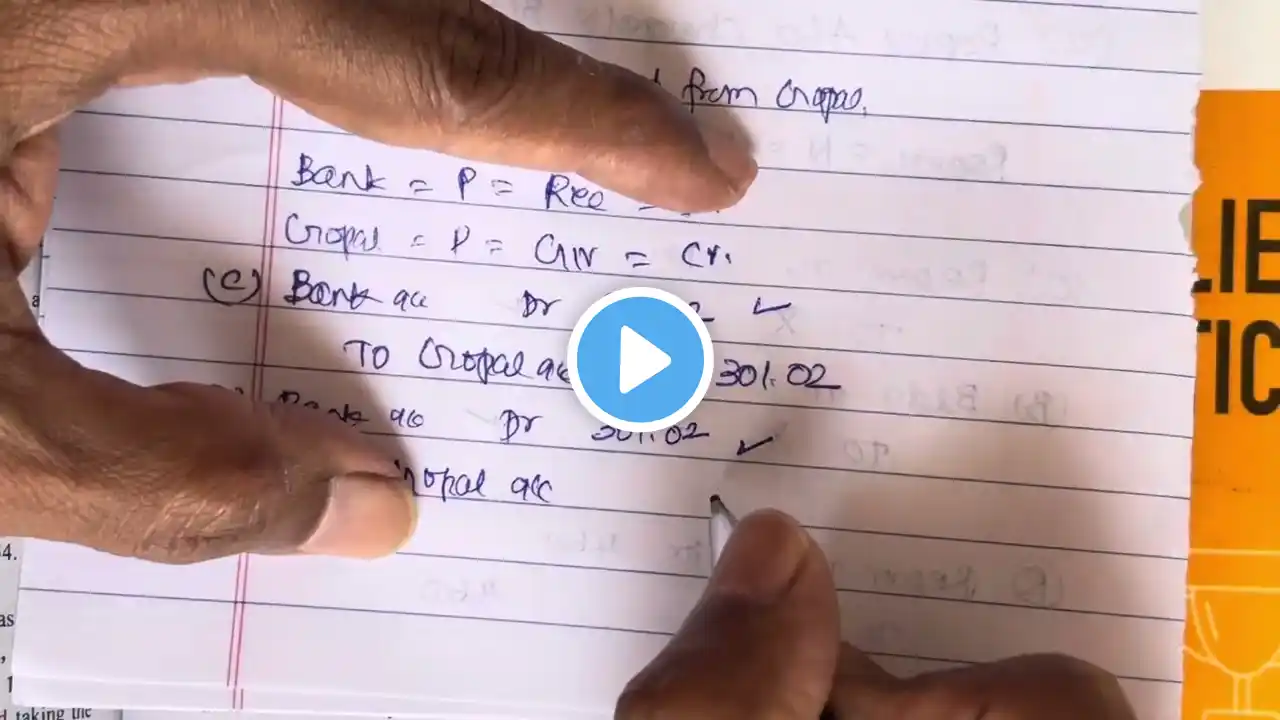 from Gopal.
Bank = P = Rec =
Gopal = P = Giv = Cr.
(C) Bank a/c Dr 2 ✓
To Gopal a/c 301.02
Bank a/c Dr 301.02 ✓
Gopal a/c
LIE
TIC
4.
as
1
taking the